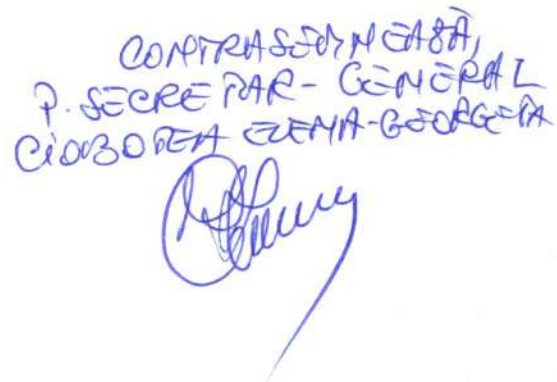 CONTRASEMNEAZĂ,
P. SECRETAR-GENERAL
CIOBOTEA ELENA-GEORGETA